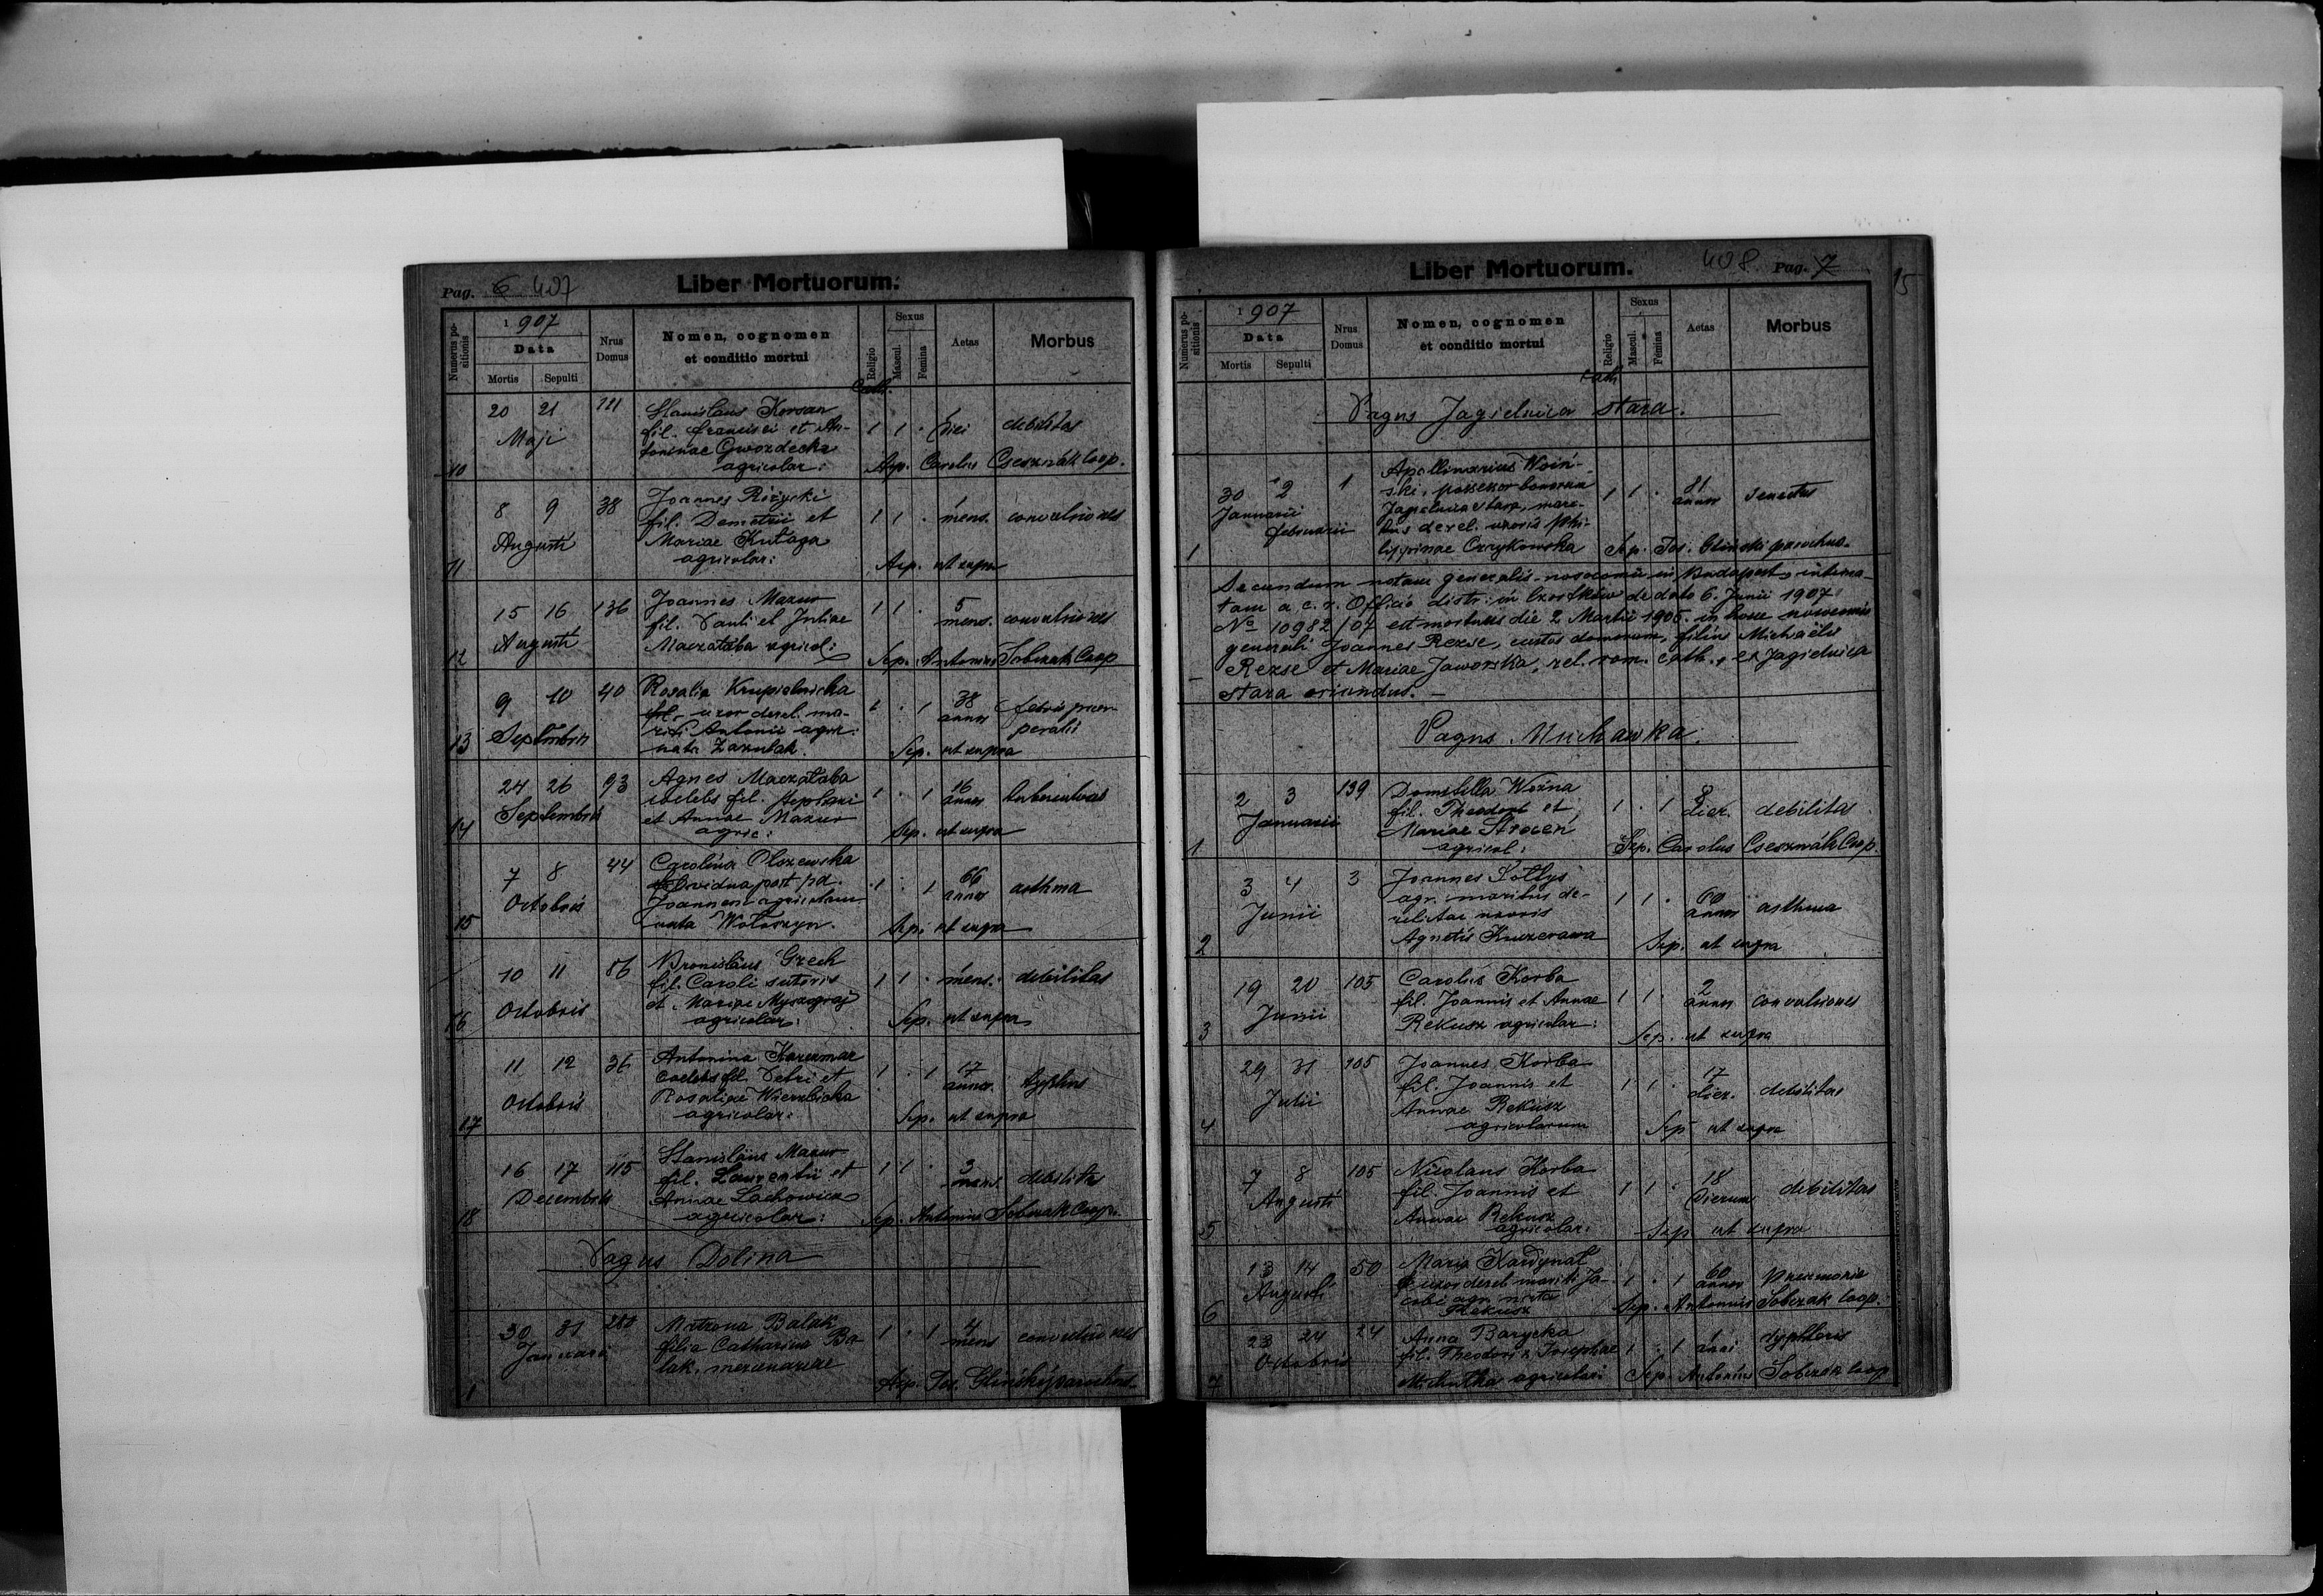 Pag. 6 407
Liber Mortuorum.
Numerus positionis
1907
Data
Mortis Sepulti
Nrus Domus
Nomen, cognomen
et conditio mortui
Religio
Sexus
Mascul.
Femina
Aetas
Morbus
Cath.
10 20 21 Maji 121
Stanislaus Korsan
fil. Francisci et An-
toninae Gwozdecka
agricolar:
1 1 . 1 diei debilitas
Sep. Carolus Csesznák Coop.
11 8 9 Augusti 38
Joannes Różycki
fil. Demetrii et
Mariae Kułaga
agricolar:
1 1 . 1 mens. convulsiones
Sep. ut supra
12 15 16 Augusti 136
Joannes Mazur
fil. Pauli et Juliae
Maczałaba agricol:
1 1 . 5 mens. convulsiones
Sep. Antonius Sobczak Coop
13 9 10 Septembris 40
Rosalia Krupielnicka
fil. uxor derel. ma-
riti Antonii agr.
nata Zazulak.
1 . 1 38 annor febris puer-
peralis
Sep. ut supra
14 24 26 Septembris 93
Agnes Maczałaba
coelebs fil. Stephani
et Annae Mazur
agric:
1 . 1 16 annor tuberculosis
Sep. ut supra
15 7 8 Octobris 44
Carolina Olszewska
vidua post pd.
Joannem agricolam
nata Wołoszyn.
1 . 1 66 annor asthma
Sep. ut supra
16 10 11 Octobris 86
Bronislaus Grech
fil. Caroli sutoris
et Mariae Myszograj
agricolar:
1 1 . 1 mens. debilitas
Sep. ut supra
17 11 12 Octobris 36
Antonina Karczmar
coelebs fil. Petri et
Rosaliae Wierzbicka
agricolar:
1 . 1 17 annor. typhus
Sep. ut supra
18 16 17 Decembris 115
Stanislaus Mazur
fil. Laurentii et
Annae Lachowicz
agricolar:
1 1 . 3 mens. debilitas
Sep. Antonius Sobczak Coop.
Pagus Dolina
1 30 31 Januarii 280
Matrona Balak
filia Catharina Ba-
lak, mercenariae
1 . 1 4 mens convulsiones
Sep. Jos. Gliński parochus
Liber Mortuorum.
408 Pag. 7
15
Numerus positionis
1907
Data
Mortis Sepulti
Nrus Domus
Nomen, cognomen
et conditio mortui
Religio
Sexus
Mascul.
Femina
Aetas
Morbus
Cath
Pagus Jagielnica stara.
1 30 Januarii 2 Februarii 1
Apollinarius Woiń-
ski, possessor bonorum
Jagielnica stara, mari-
tus derel. uxoris Phi-
lippinae Czaykowska
1 1 . 81 annor senectus
Sep. Jos. Gliński parochus.
Secundum notam generalis nosocomii in Budapest, intima-
tam a c. r. Officio distr: in Czortków de dato 6. Junii 1907
No 10982/07 est mortuus die 2 Martii 1905. in hocce nosocomio
generali Joannes Rezse, custos domorum, filius Michaëlis
Rezse et Mariae Jaworska, rel. rom. cath., ex Jagielnica
stara oriundus. —
Pagus Muchawka.
1 2 3 Januarii 139
Domitella Woźna
fil. Theodori et
Mariae Stroceń
agricol:
1 . 1 8 dier. debilitas
Sep. Carolus Csesznák Coop.
2 3 4 Junii 3
Joannes Sołtys
agr. maritus de-
relictae uxoris
Agnetis Kuczerawa
1 1 . 60 annor asthma
Sep. ut supra
3 19 20 Junii 105
Carolus Korba
fil. Joannis et Annae
Rekusz agricolar:
1 1 . 2 annor convulsiones
Sep. ut supra
4 29 31 Julii 105
Joannes Korba
fil. Joannis et
Annae Rekusz
agricolarum
1 1 . 17 dier. debilitas
Sep ut supra
5 7 8 Augusti 105
Nicolaus Korba
fil. Joannis et
Annae Rekusz
agricolar:
1 1 . 18 dierum debilitas
Sep ut supra
6 13 14 Augusti 50
Maria Kardynał
uxor derel. mariti Ja-
cobi agr. nata
Rekusz
1 . 1 60 annor Pneumonia
Sep. Antonius Sobczak Coop.
7 23 24 Octobris 24
Anna Barycka
fil. Theodori & Josephae
Michułka agricolar:
1 . 1 1 anni dyphteris
Sep. Antonius Sobczak Coop